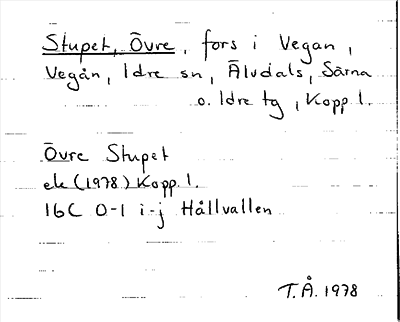 Stupet, Övre, fors i Vegan,
Vegån, Idre sn, Älvdals, Särna
o. Idre tg, Kopp l.
Övre Stupet
ek (1978) Kopp. l.
16C 0-1 i-j Hållvallen
T.Å. 1978